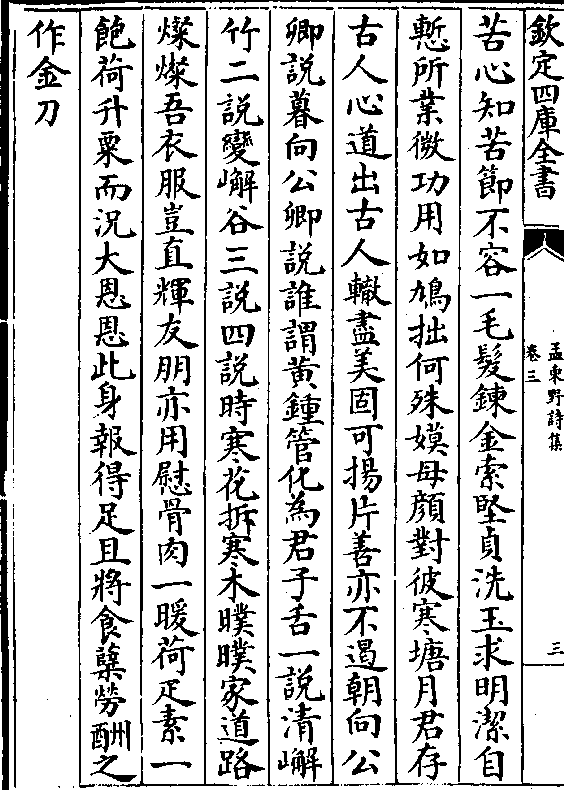 欽定四庫全書
孟東野詩集
卷三
三
苦心知苦節不容一毛髮鍊金索堅貞洗玉求明潔自
慙所業微功用如鳩拙何殊嫫母顔對彼寒塘月君存
古人心道出古人轍盡美固可揚片善亦不遏朝向公
卿說暮向公卿說誰謂黄鍾管化為君子舌一說清嶰
竹二說變嶰谷三說四說時寒花拆寒木曗曗家道路
燦燦吾衣服豈直輝友朋亦用慰骨肉一暖荷疋素一
飽荷升粟而況大恩恩此身報得足且將食蘖勞酬之
作金刀